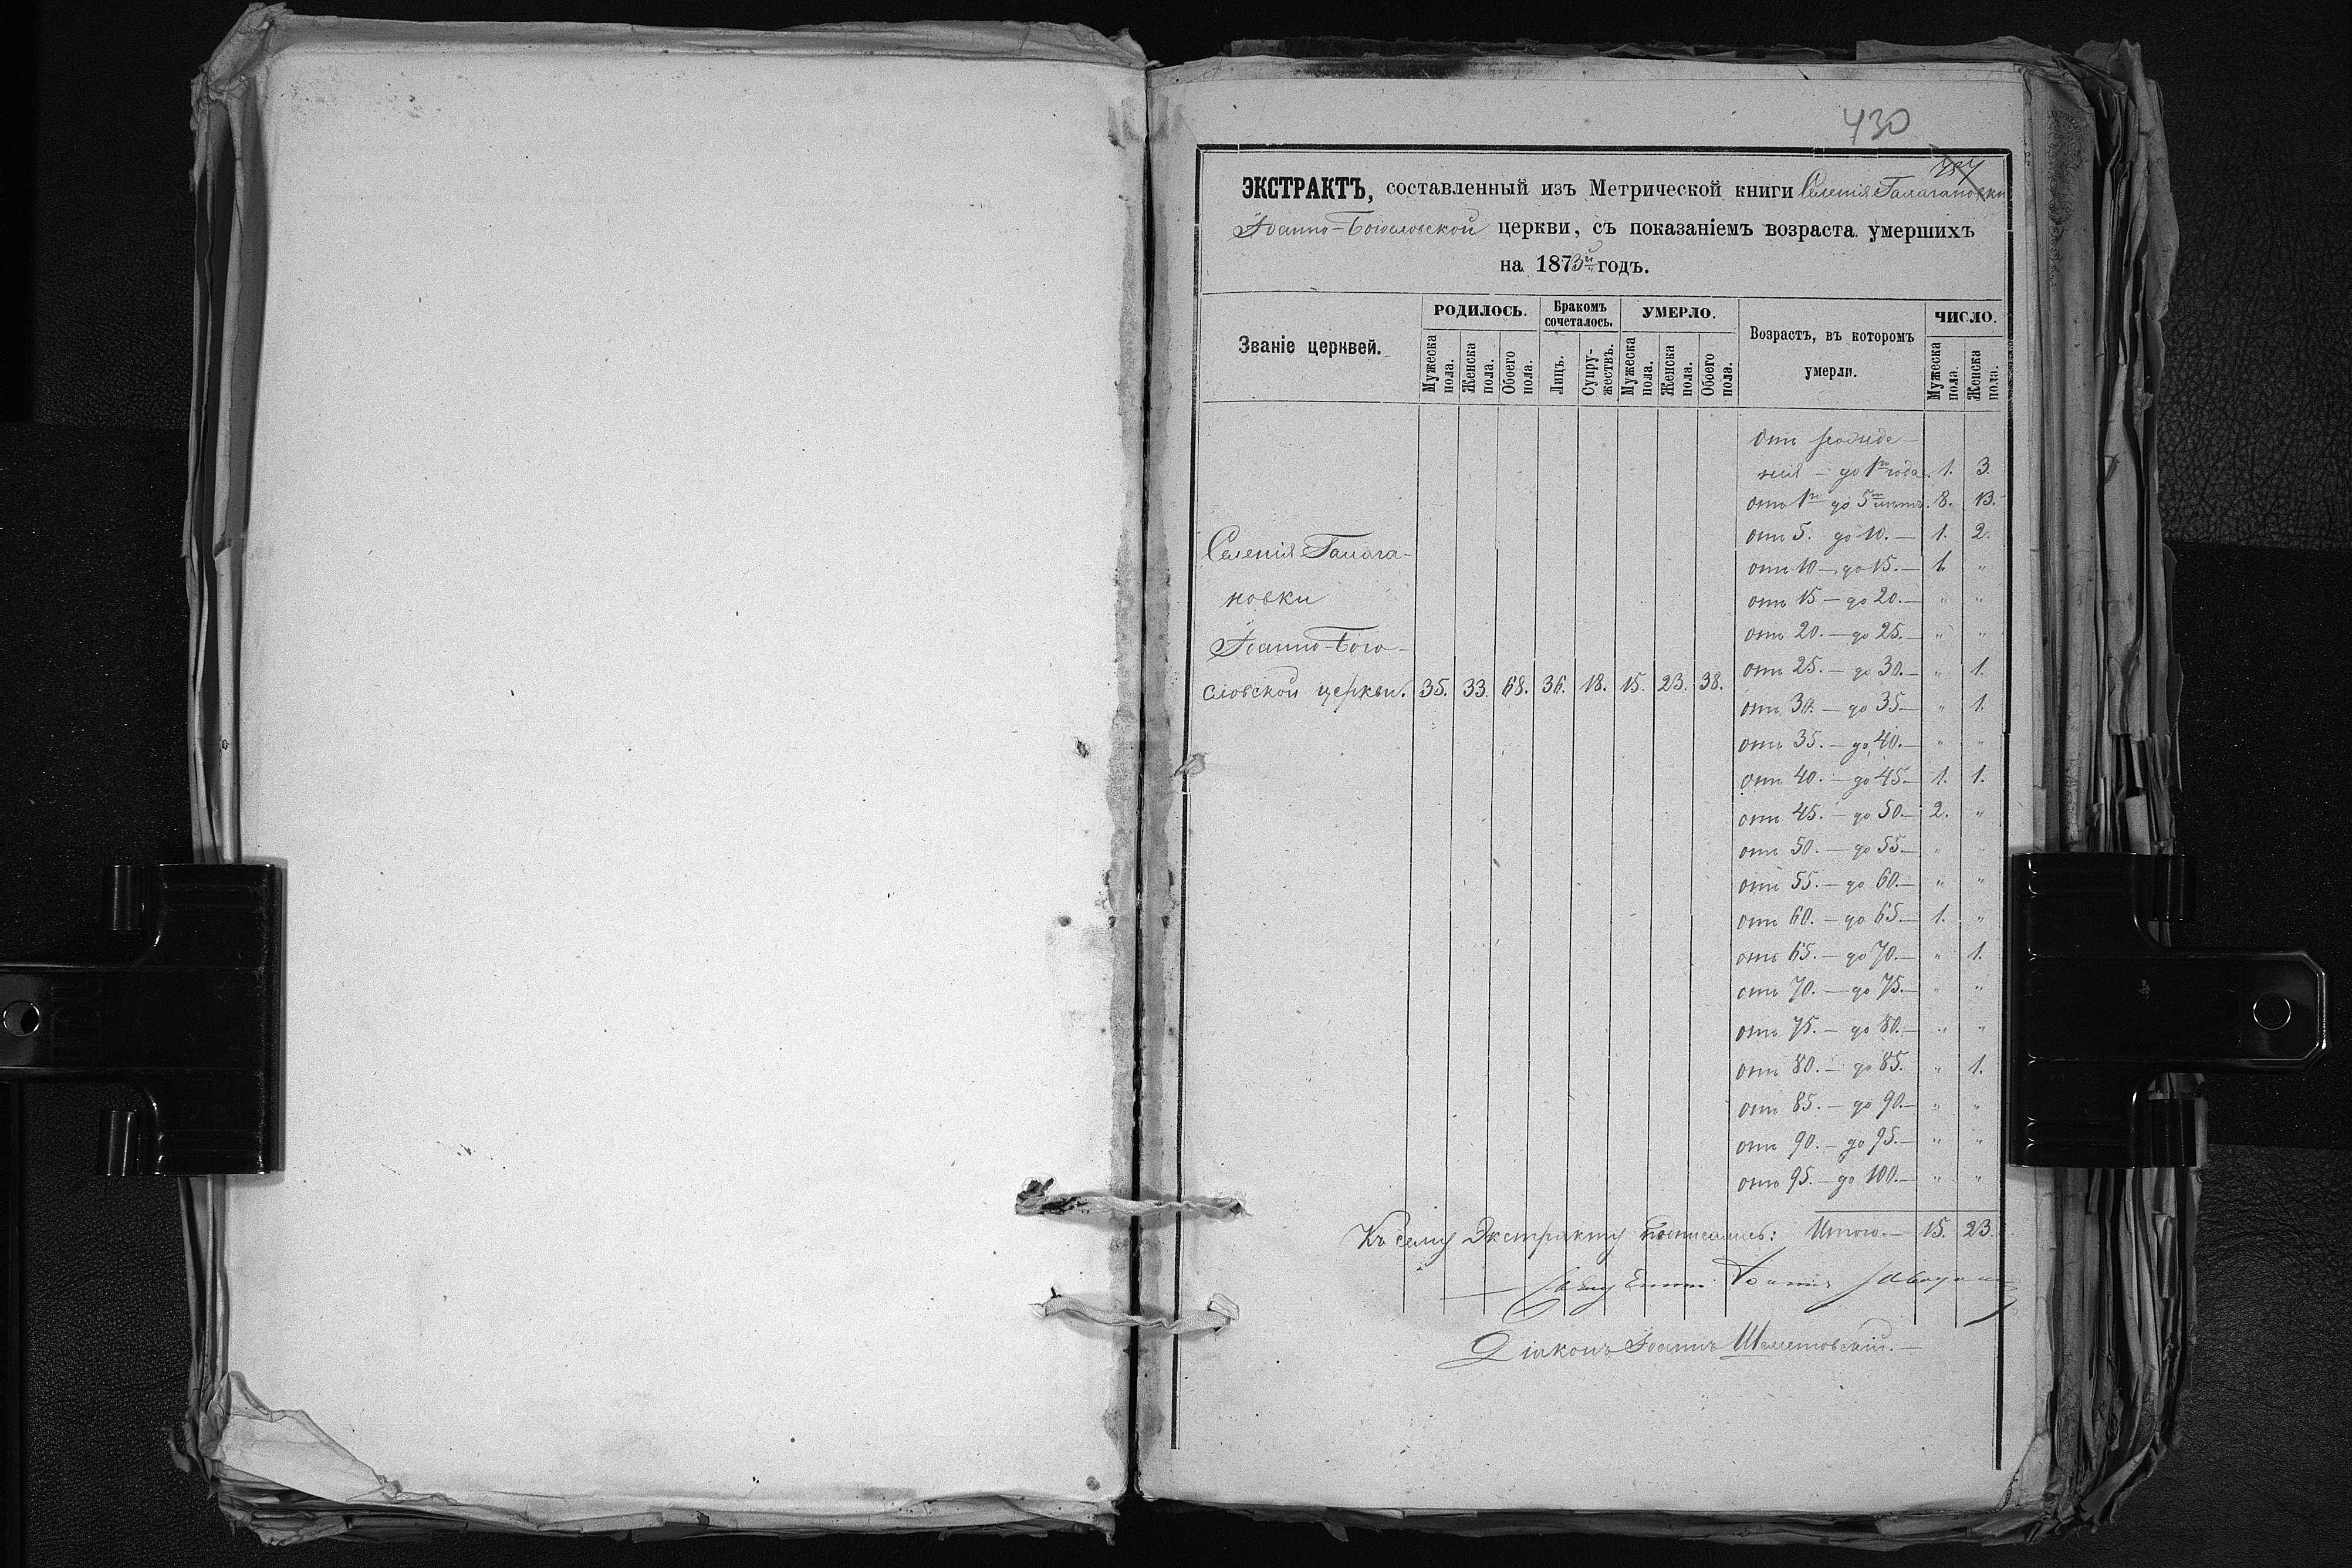 430
ЭКСТРАКТЪ, составленный изъ Метрической книги Селенія Галагановки
Іоанно-Богословской церкви, съ показаніемъ возраста умершихъ
на 1873й годъ.
Званіе церквей. РОДИЛОСЬ. Бракомъ сочеталось. УМЕРЛО. Возрастъ, въ которомъ умерли. ЧИСЛО.
Мужеска пола. Женска пола. Обоего пола. Лицъ. Супружествъ. Мужеска пола. Женска пола. Обоего пола. Мужеска пола. Женска пола.
Отъ рожде-
нія – до 1го года. 1. 3.
отъ 1го до 5ти лѣтъ. 8. 13.
отъ 5. до 10. — 1. 2.
отъ 10 — до 15. — 1. "
отъ 15 — до 20. — " "
отъ 20. — до 25. — " "
отъ 25. — до 30. — " 1.
отъ 30. — до 35 — " 1.
отъ 35. — до 40. — " "
отъ 40. — до 45. — 1. 1.
отъ 45. — до 50. — 2. "
отъ 50. — до 55 — " "
отъ 55. — до 60. — " "
отъ 60. — до 65 — 1. "
отъ 65. — до 70. — " 1.
отъ 70. — до 75. — " "
отъ 75. — до 80. — " "
отъ 80. — до 85. " 1.
отъ 85. — до 90. — " "
отъ 90. — до 95. — " "
отъ 95. — до 100. — " "
Селенія Галага-
новки
Іоанно-Бого-
словской церкви. 35. 33. 68. 36. 18. 15. 23. 38.
Къ сему Экстракту подписались: Итого. — 15. 23.
Іоаннъ
Діаконъ Іоаннъ Шеметовскій. —